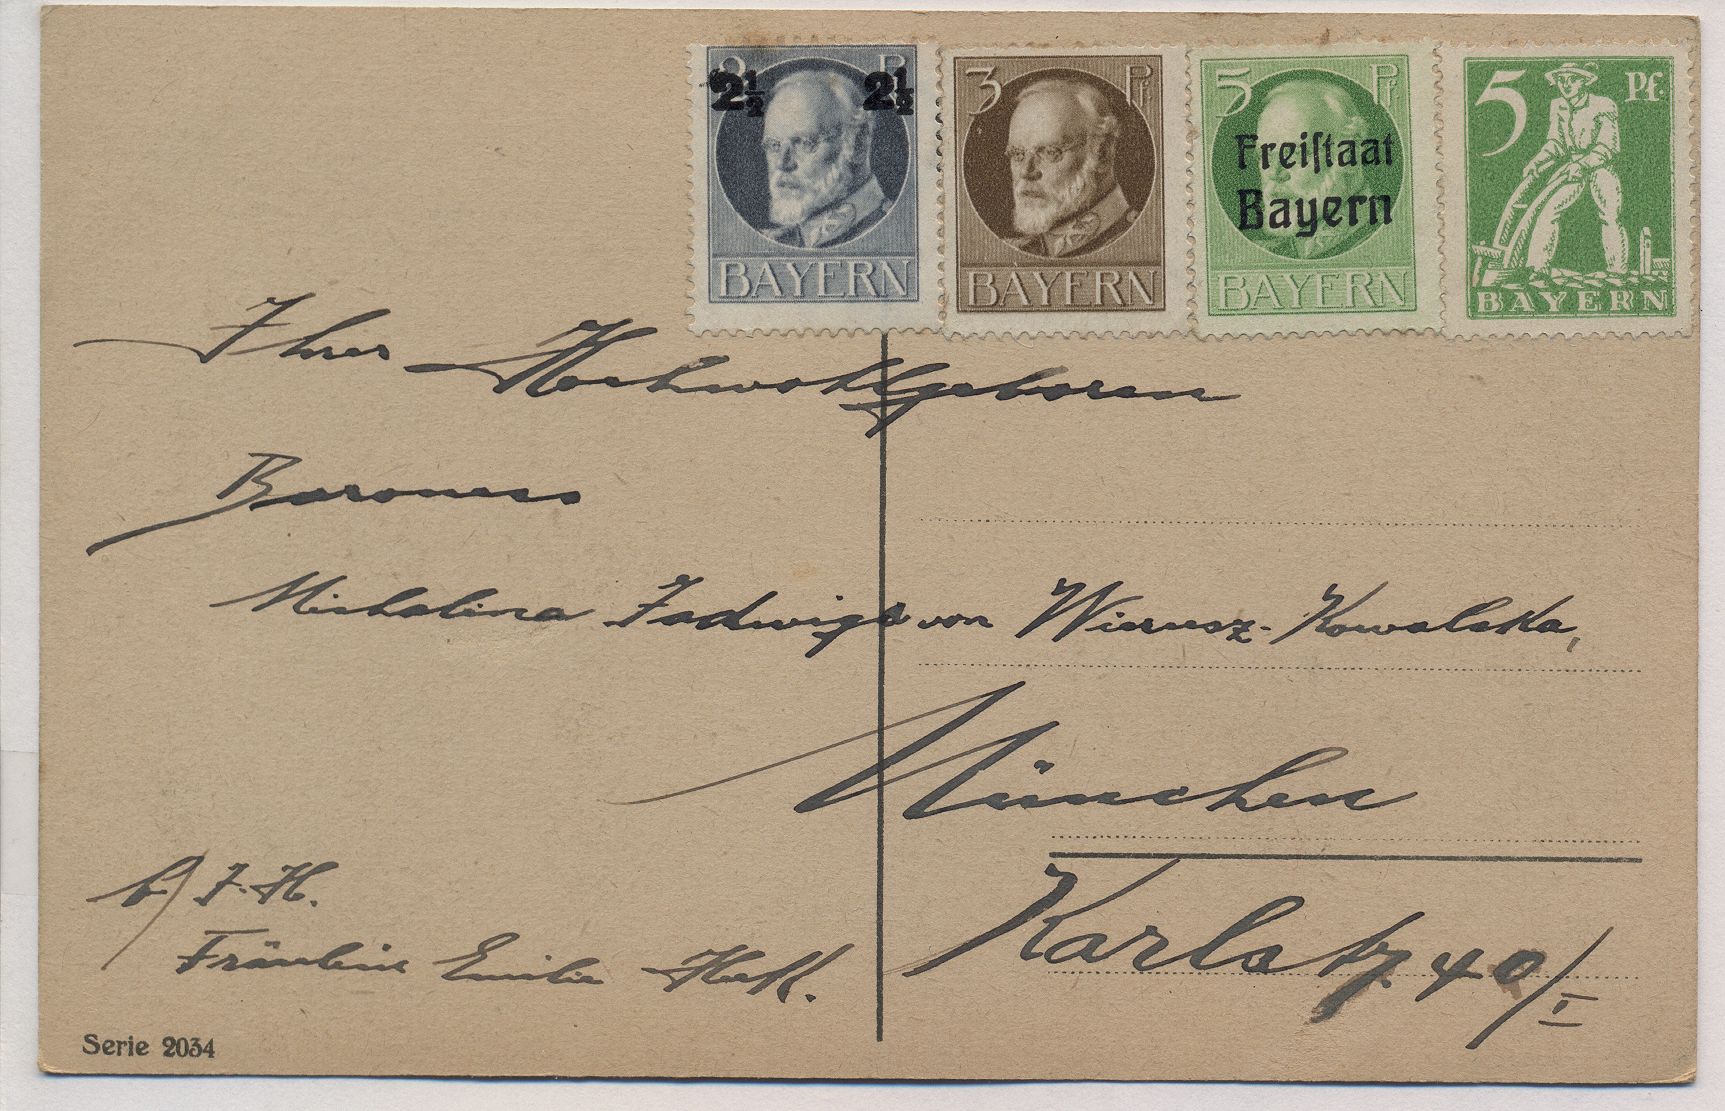 2½ 2½
BAYERN
3 Pf
BAYERN
5 Pf
Freiſtaat
Bayern
BAYERN
5 Pf.
BAYERN
Ihrer Hochwohlgeboren
Baroness
Michalina Jadwiga von Wierusz-Kowalska,
München
Karlstr. 40/I
b/ F. H.
Fräulein Emilie Heß.
Serie 2034